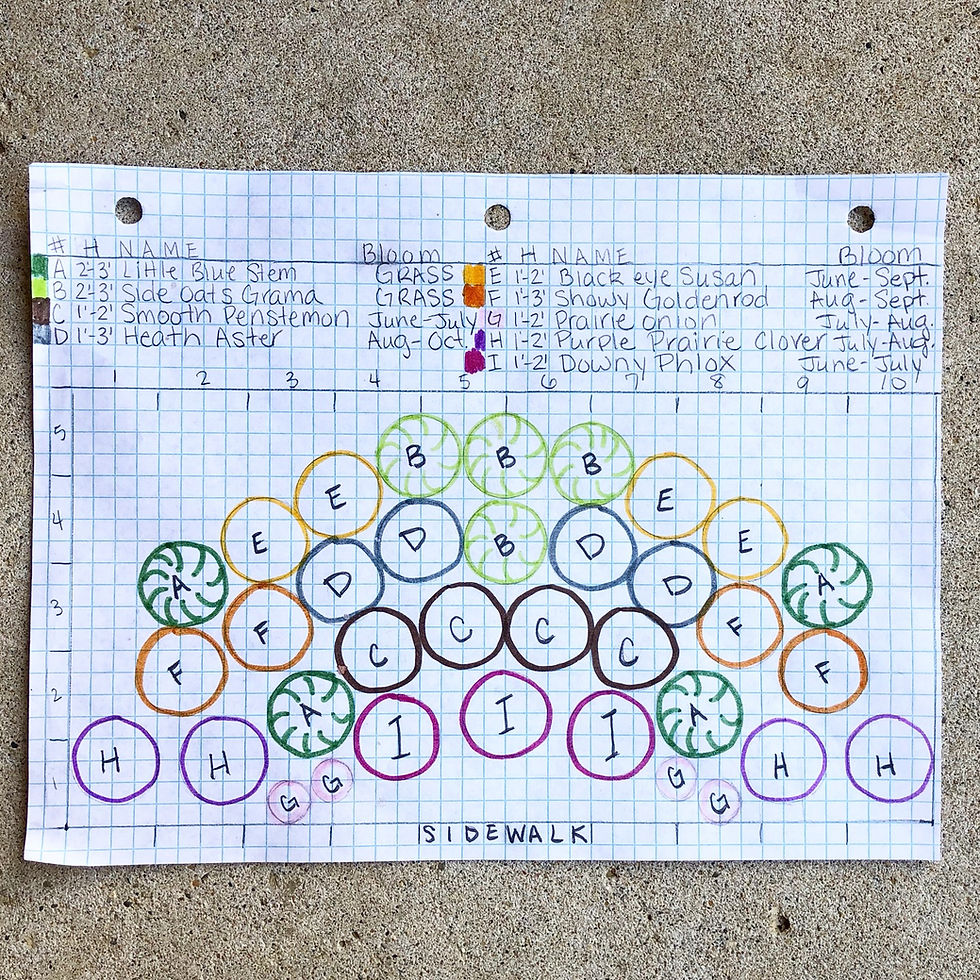 # H NAME Bloom # H NAME Bloom
A 2'-3' Little Blue Stem GRASS E 1'-2' Black eye Susan June-Sept.
B 2'-3' Side Oats Grama GRASS F 1'-3' Showy Goldenrod Aug-Sept.
C 1'-2' Smooth Penstemon June-July G 1'-2' Prairie onion July-Aug.
D 1'-3' Heath Aster Aug-Oct. H 1'-2' Purple Prairie Clover July-Aug.
I 1'-2' Downy Phlox June-July
1 2 3 4 5 6 7 8 9 10
5
B B B
E E
4
E D B D E
A D D A
3
F C C C C F
F F
2
A I I I A
H H G G H H
1
G G
SIDEWALK